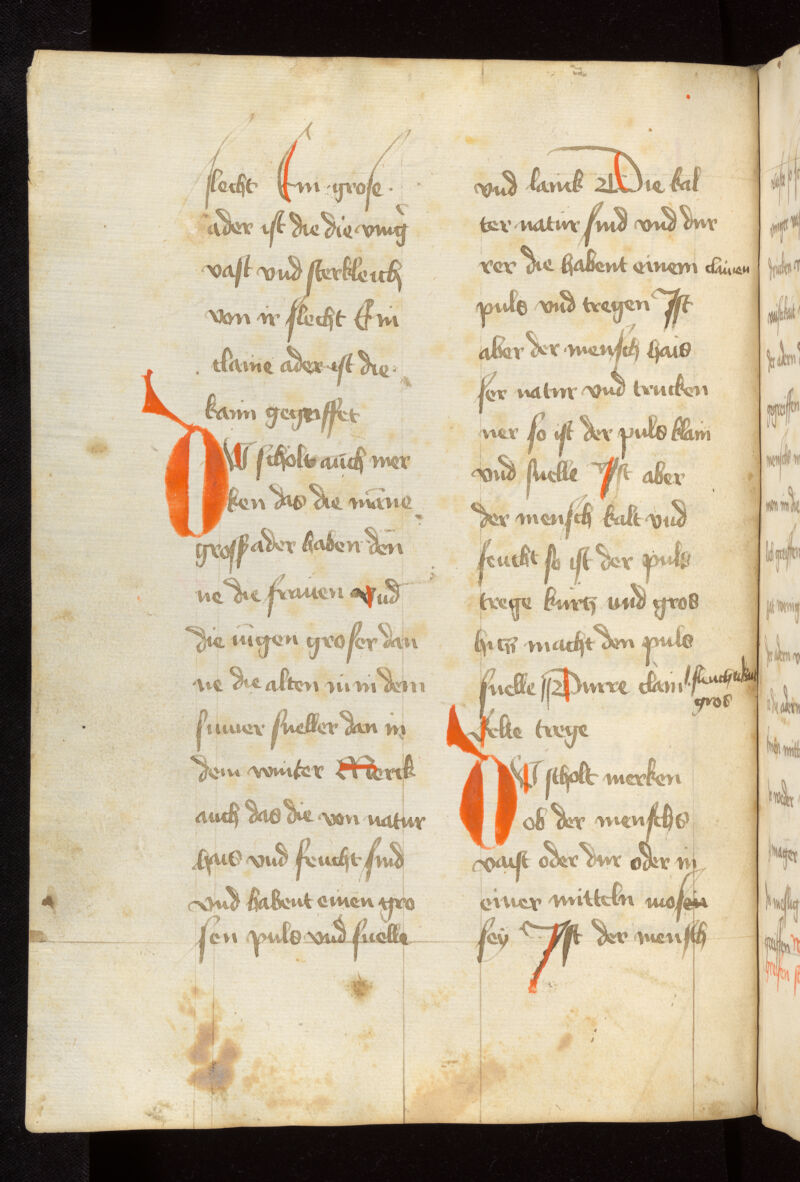 slecht Ein grose
ader ist die die ving
vast vnd sterkleich
von ir slecht Ein
claine ader ist die
kaum gegriffet
DW scholt auch mer
ken das die mane
gross ader haben den
ne die frauen vnd
die iungen groser dan
ne die alten in in dem
sumer sneller dan in
dem winter Merck
auch das die von natur
hais vnd feucht sind
vnd habent einen gro
sen puls vnd snelle
vnd lanck Die kal
ter natur sind vnd dur
rer die habent einem clainen
puls vnd tregen Ist
aber der mensch hais
ser natur vnd trucken
ner so ist der puls klain
vnd snelle Ist aber
der mensch kalt vnd
feucht so ist der puls
trege kurtz vnd gros
hitz macht den puls
snelle Durre clain
gros
kelte trege
DW scholt merken
ob der menschs
vaist oder dur oder in
einer mitteln mosen
sey Ist der mensch